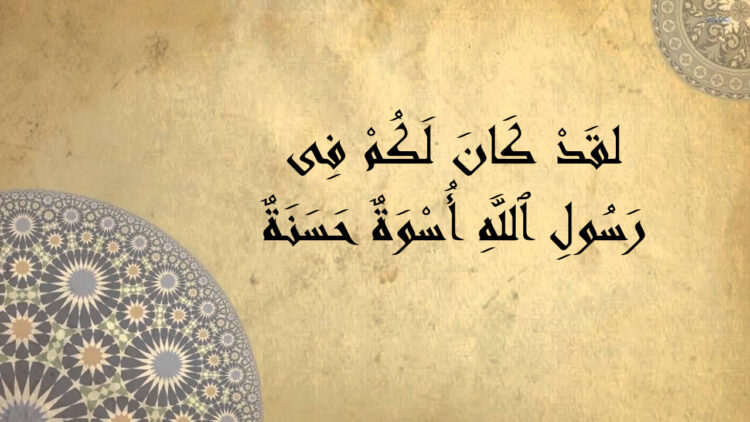 لقَدْ كَانَ لَكُمْ فِى
رَسُولِ ٱللَّهِ أُسْوَةٌ حَسَنَةٌ